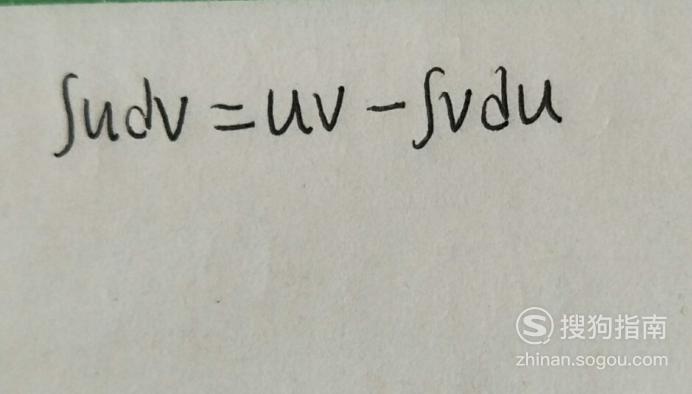 ∫udv=uv-∫vdu
搜狗指南
zhinan.sogou.com